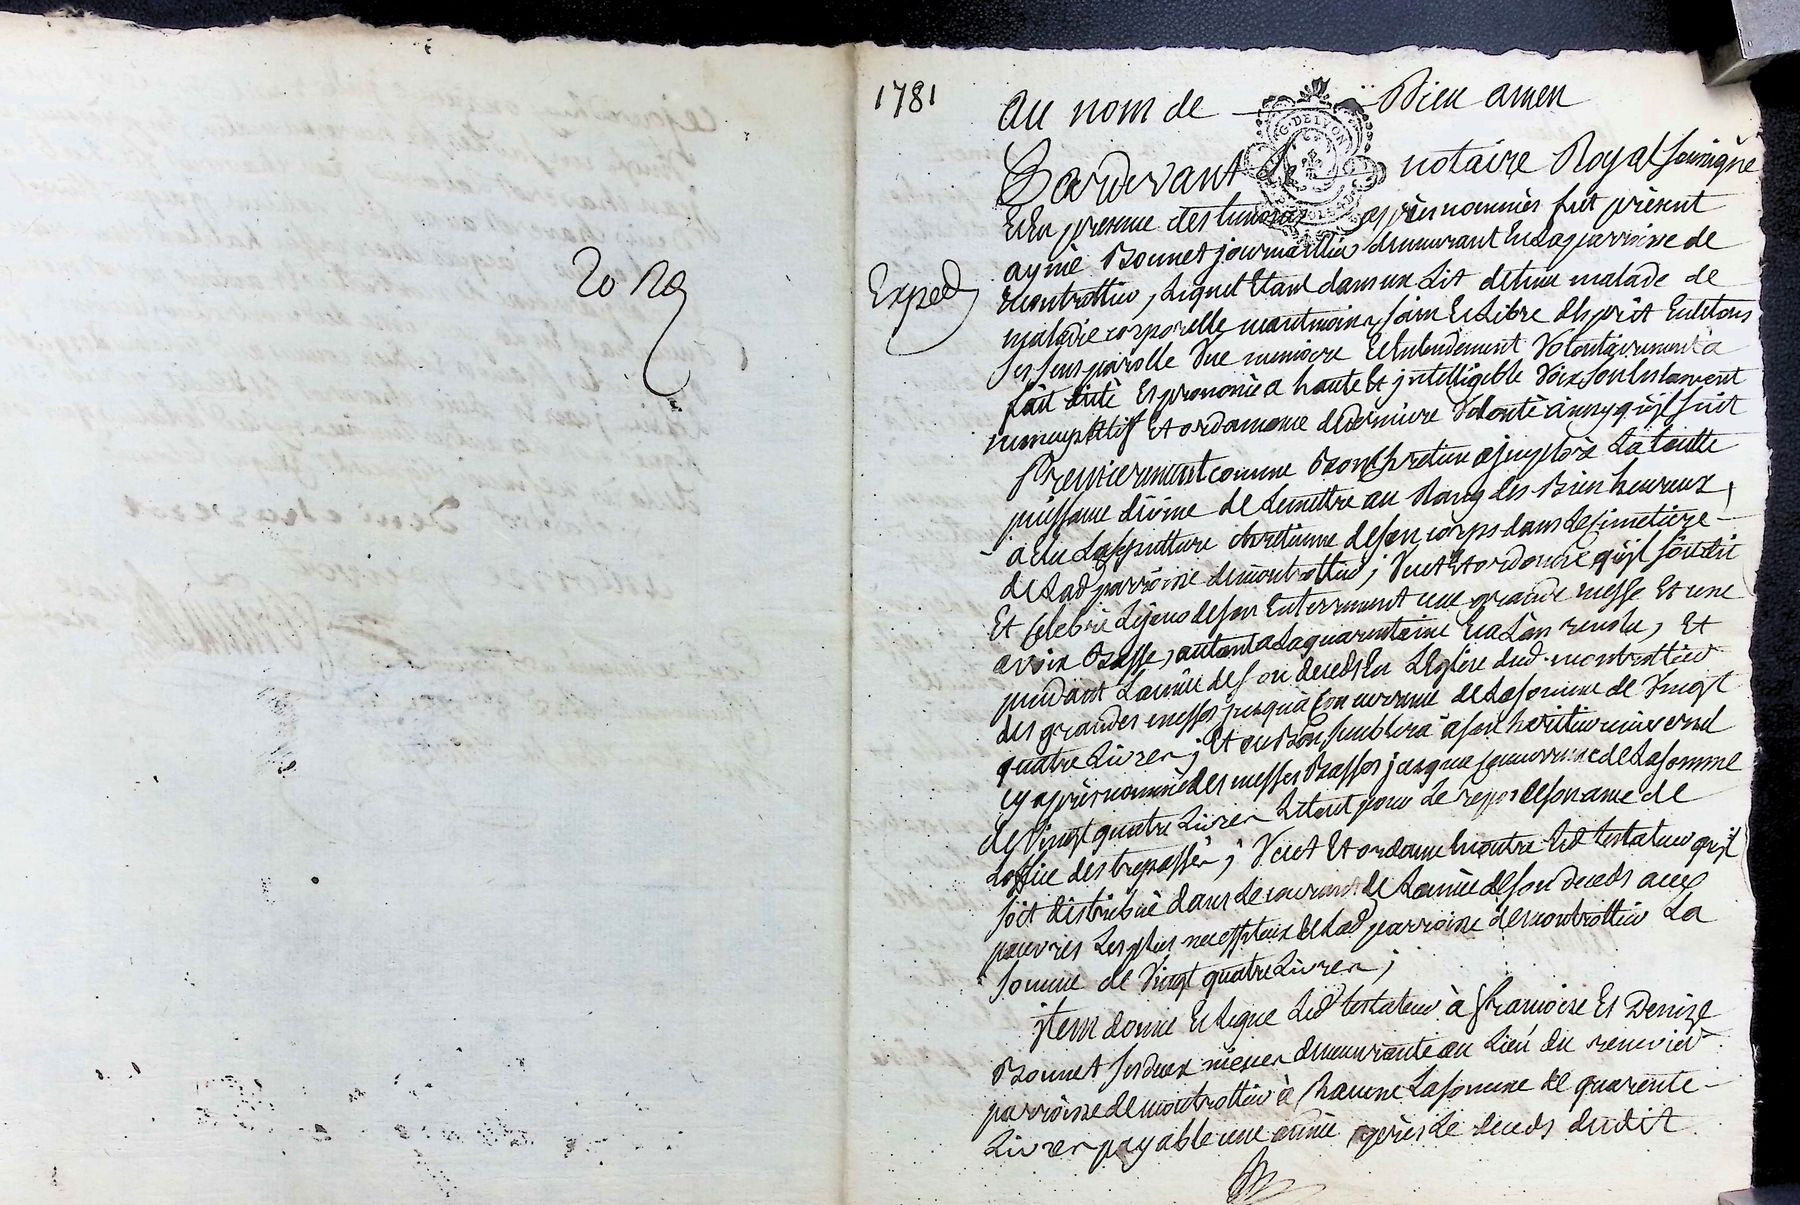 1781
au nom de Dieu amen
G. DE LYON
Pardevant Le notaire Royal Soussigné
Et En presence des temoins après nommés fut présent
aymé Bonnet journallier demeurant En La parroisse de
montrottier, Lequel Etant dans un Lit detenu malade de
Exped
20 Rg
maladie corporelle neantmoins sain Et Libre d'Esprit En tous
ses sens parolle Vue memoire Et Entendement Volontairement a
fait dité Et prononcé a haute Et jntelligible Voix son testament
nuncupatif Et ordonnance de derniere Volonté ainsy qu'jl suit
Premierement comme Bon Chretien a jmploré La toutte
puissance divine de Le mettre au Rang des Bien heureux,
à Elu La sepulture chretienne de son corps dans Le cimetiere
de Lad parroisse de montrottier; Veut Et ordonne qu'jl soit dit
Et Celebré Le jour de son Enterrement une grande messe Et une
a voix Basse, autant a La quarantaine Et a L'an revolu, Et
pendant L'année de son deceds En L'Eglise dud. montrottier
des grandes messes jusqu'à Concurrance de La somme de Vingt
quatre Livres; Et ou Bon semblera à son heritier universel
cy après nommé des messes Basses jusqu'a Concurrance de La somme
de Vingt quatre Livres Le tout pour Le repos de son ame de
L'office des trepassés; Veut Et ordonne En outre Led testateur qu'jl
soit distribué dans Le courant de L'année de son deceds aux
pauvres Les plus necessiteux de Lad parroisse de montrottier La
somme de Vingt quatre Livres;
jtem donne Et Legue Led testateur à francoise Et Denize
Bonnet ses deux nieces demeurante au Lieu du
parroisse de montrottier à Chacune La somme de quarente
Livres payable une année après Le deceds dudit